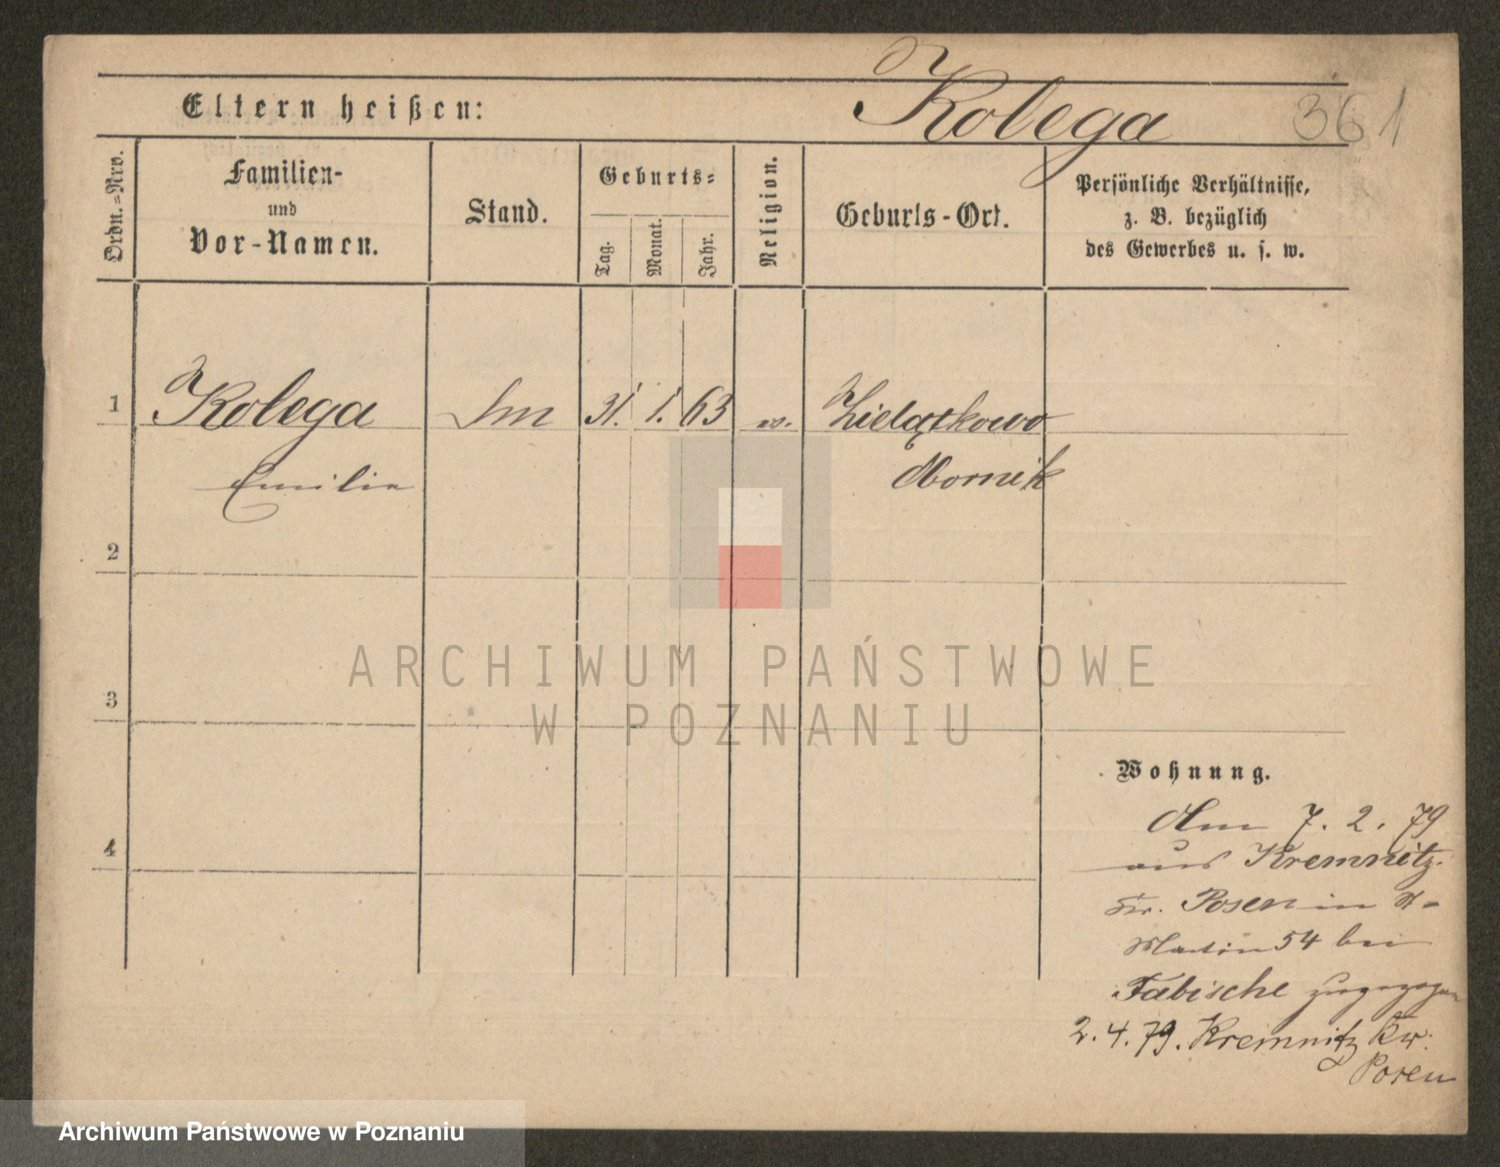 Eltern heißen:
Kolega
361
Ordn.-Nro.
Familien-
und
Vor-Namen.
Stand.
Geburts-
Tag.
Monat.
Jahr.
Religion.
Geburts-Ort.
Persönliche Verhältnisse,
z. B. bezüglich
des Gewerbes u. s. w.
1 Kolega 31. 1. 63 Zielątkowo
Emilie Obornik
2
3
4
ARCHIWUM PAŃSTWOWE
W POZNANIU
Wohnung.
Am 7. 2. 79
aus Kremnitz
Kr. Posen in St
Martin 54 bei
Fabische zugezogen
2. 4. 79. Kremnitz Kr.
Posen
Archiwum Państwowe w Poznaniu